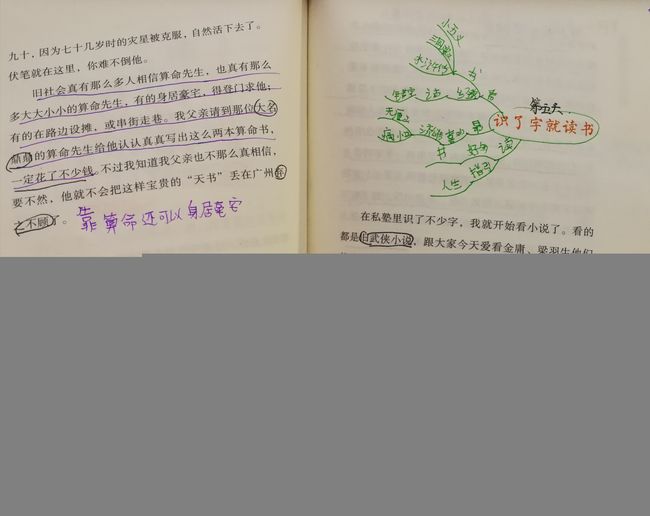 九十，因为七十几岁时的灾星被克服，自然活下去了。
伏笔就在这里，你难不倒他。
旧社会真有那么多人相信算命先生，也真有那么
多大大小小的算命先生，有的身居豪宅，得登门求他；
有的在路边设摊，或串街走巷。我父亲请到那位大名
鼎鼎的算命先生给他认认真真写出这么两本算命书，
一定花了不少钱。不过我知道我父亲也不那么真相信，
要不然，他就不会把这样宝贵的“天书”丢在广州弃
之不顾了。
靠算命还可以身居豪宅
小五义
三国演义
水浒传
书
第五天
识了字就读书
读
好
书
人生
在私塾里识了不少字，我就开始看小说了。看的
都是旧武侠小说，跟大家今天爱看金庸、梁羽生他们